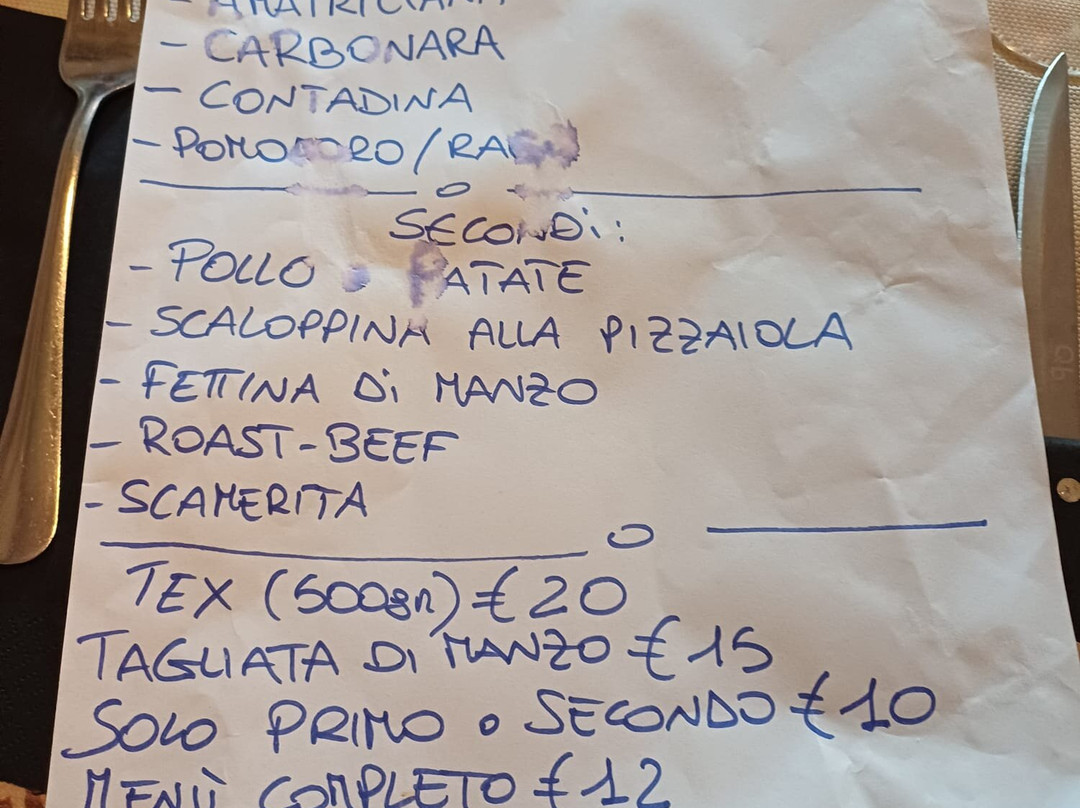 - AMATRICIANA
- CARBONARA
- CONTADINA
- POMODORO/RAGÙ
SECONDi:
- POLLO e PATATE
- SCALOPPINA ALLA PIZZAIOLA
- FETTINA Di MANZO
- ROAST-BEEF
- SCAMERITA
TEX (500gr) € 20
TAGLIATA DI MANZO € 15
SOLO PRIMO o SECONDO € 10
MENÙ COMPLETO € 12